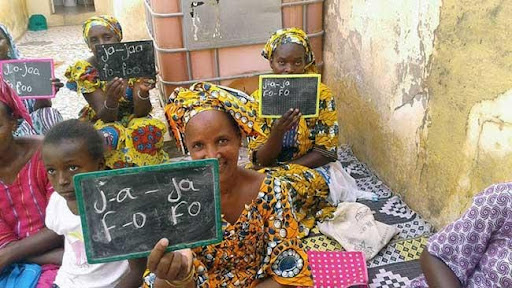 ja - jaa
fo - foo
ja - jaa
foo
j-a - ja
F-o - FO
j-a - ja
F-o FO